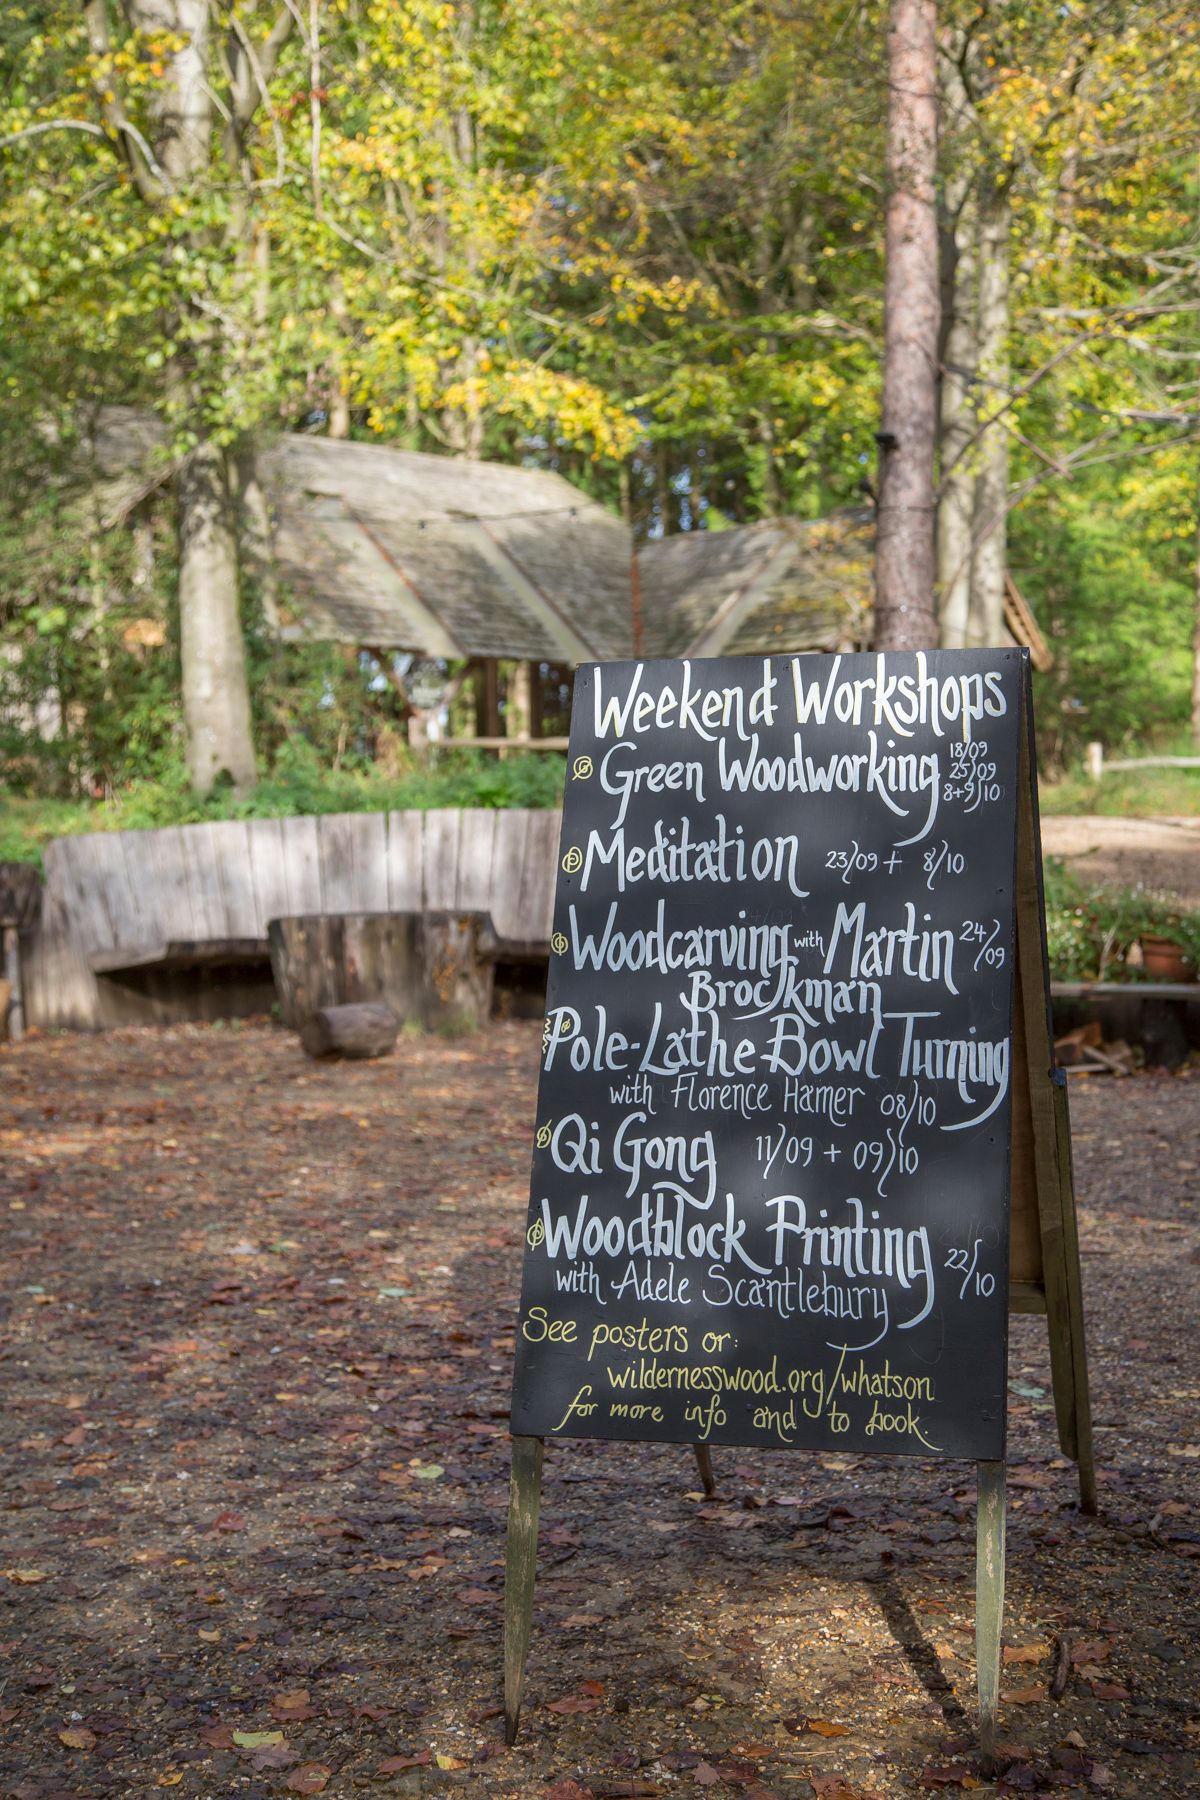 Weekend Workshops
Green Woodworking 18/09
25/09
8+9/10
Meditation 23/09 + 8/10
Woodcarving with Martin 24/09
Brockman
Pole-Lathe Bowl Turning
with Florence Hamer 08/10
Qi Gong 11/09 + 09/10
Woodblock Printing 22/10
with Adele Scantlebury
See posters or:
wildernesswood.org/whatson
for more info and to book.